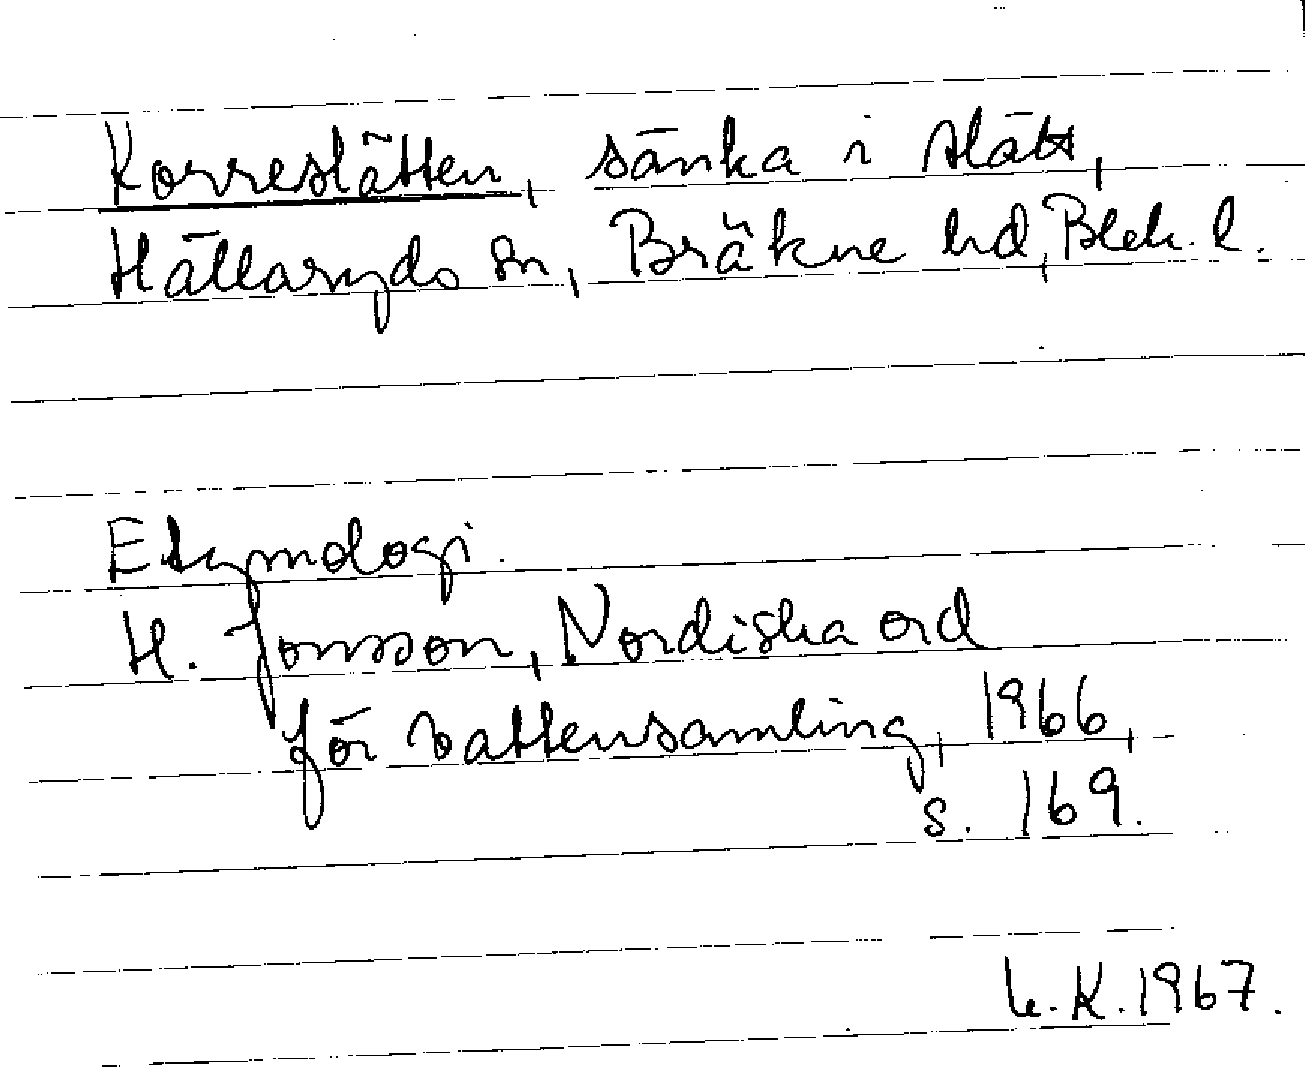 Korreslätten, sänka i slätt,
Hällaryds sn, Bräkne hd, Blek. l.
Etymologi.
H. Jonsson, Nordiska ord
för vattensamling, 1966,
s. 169.
L.K. 1967.